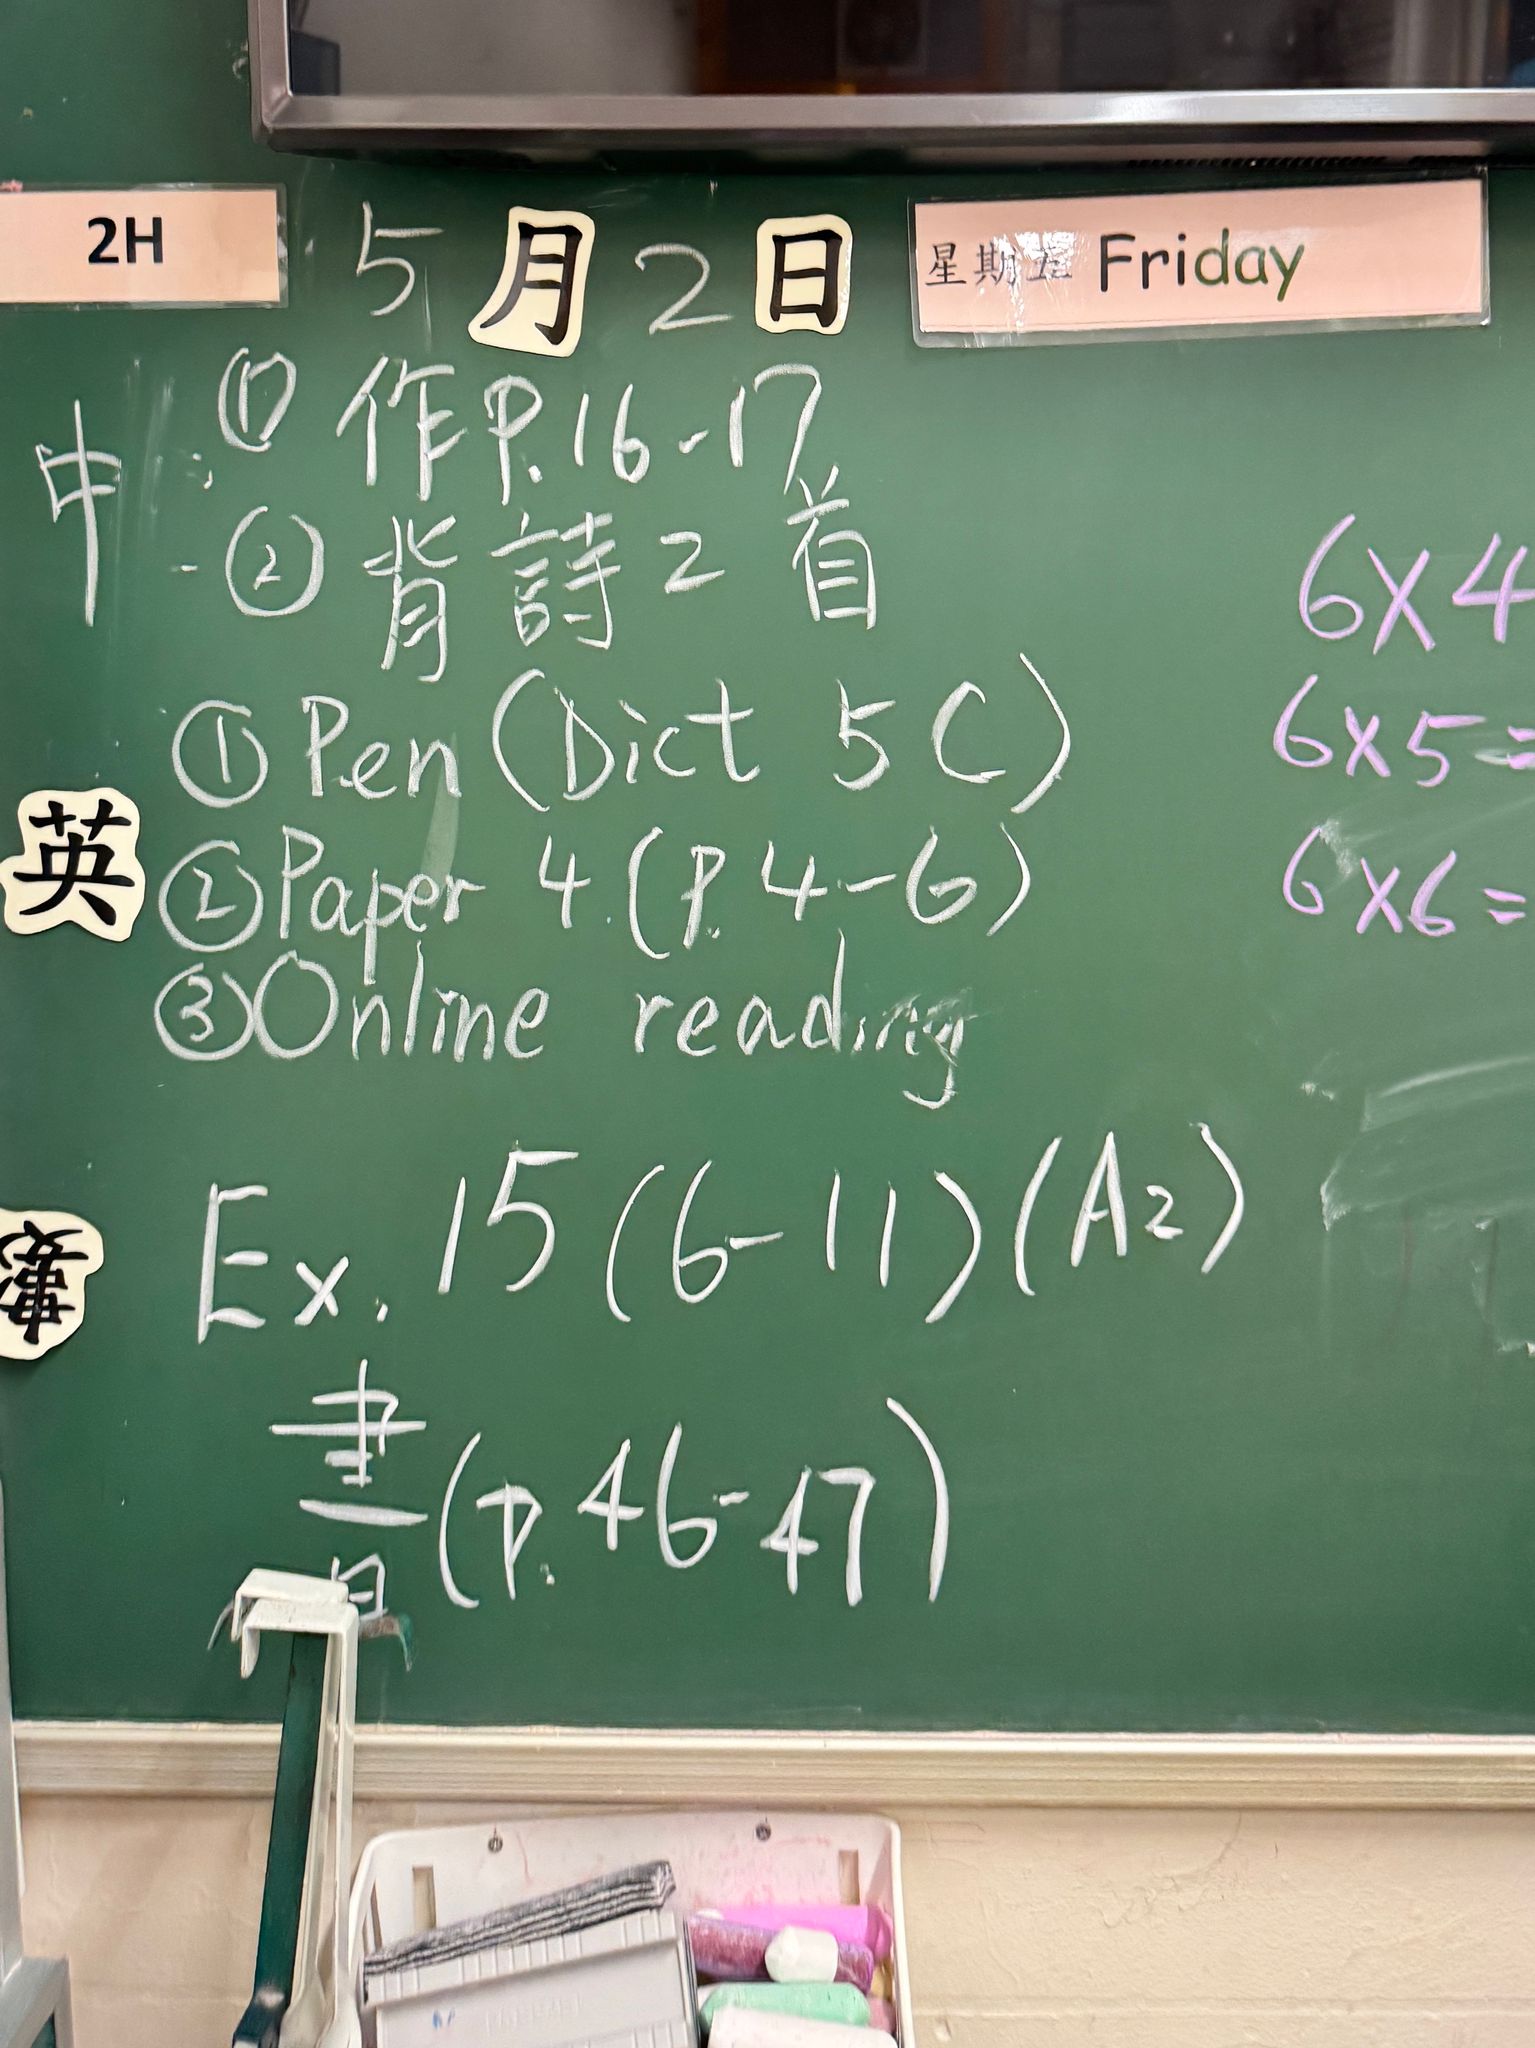 2H 5月2日 星期五 Friday
中: ① 作P.16-17
② 背詩2首
英 ① Pen (Dict 5C)
② Paper 4 (P.4-6)
③ Online reading
數 Ex. 15 (6-11) (A2)
書 (P.46-47)
6×4
6×5=
6×6=